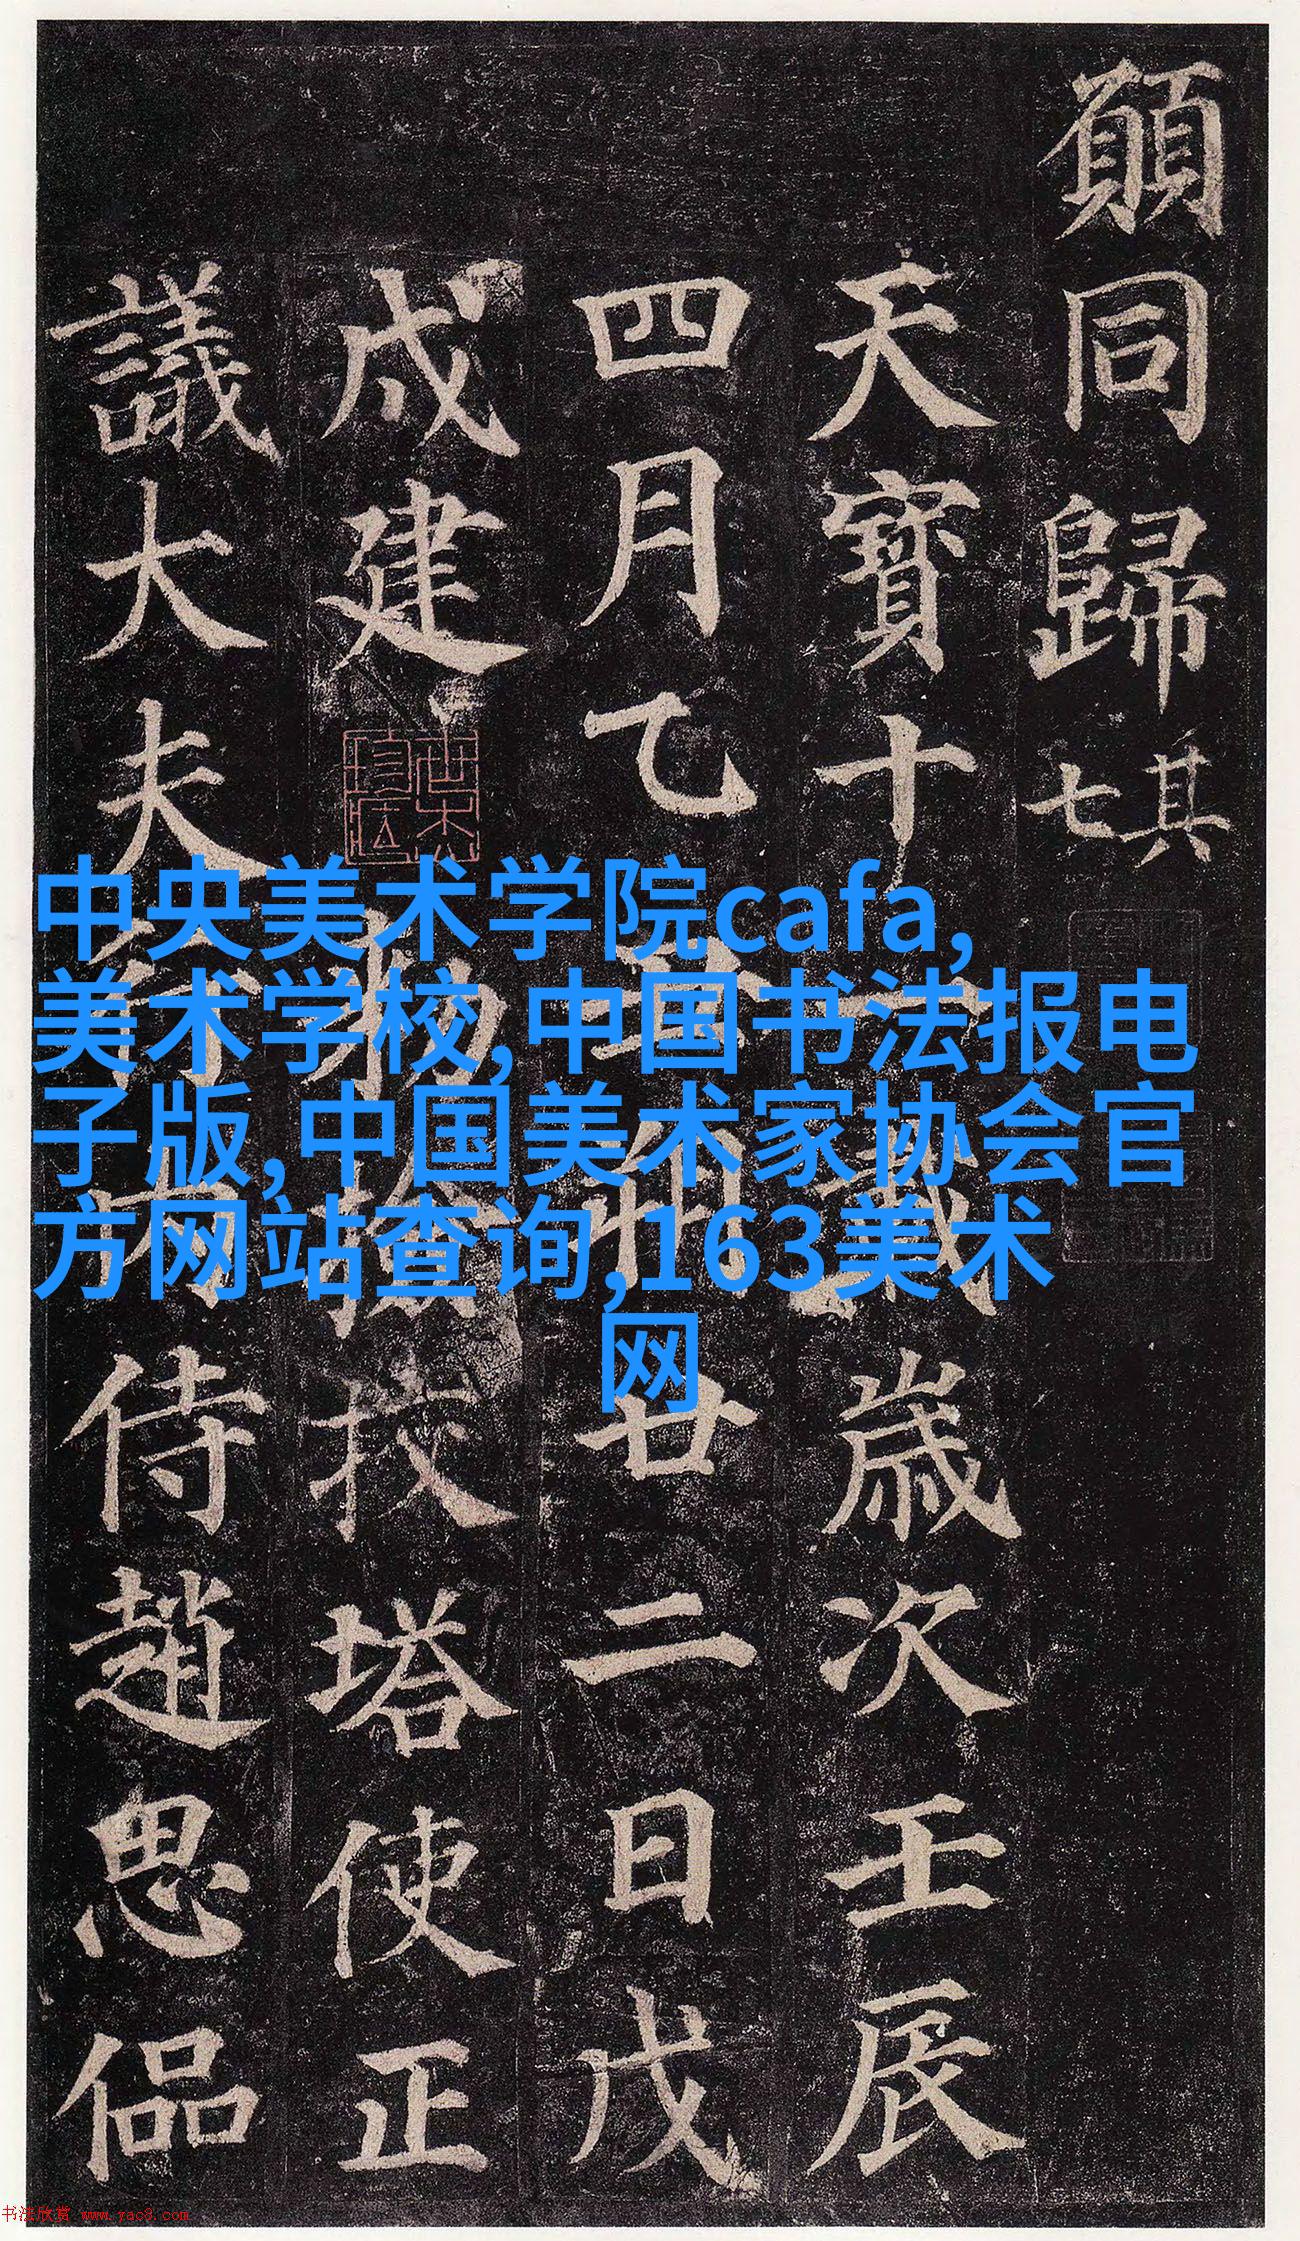 願同歸其七
天寶十一載歲次壬辰
四月乙丑朔廿二日戊
戌建勅撿挍塔使正
議大夫行內侍趙思偘
中央美术学院cafa,
美术学校,中国书法报电
子版,中国美术家协会官
方网站查询,163美术
网
书法欣赏 www.yac8.com